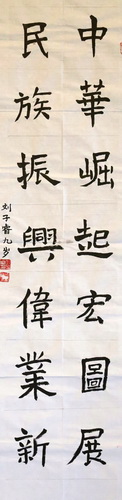 中華崛起宏圖展
民族振興偉業新
刘子睿九岁